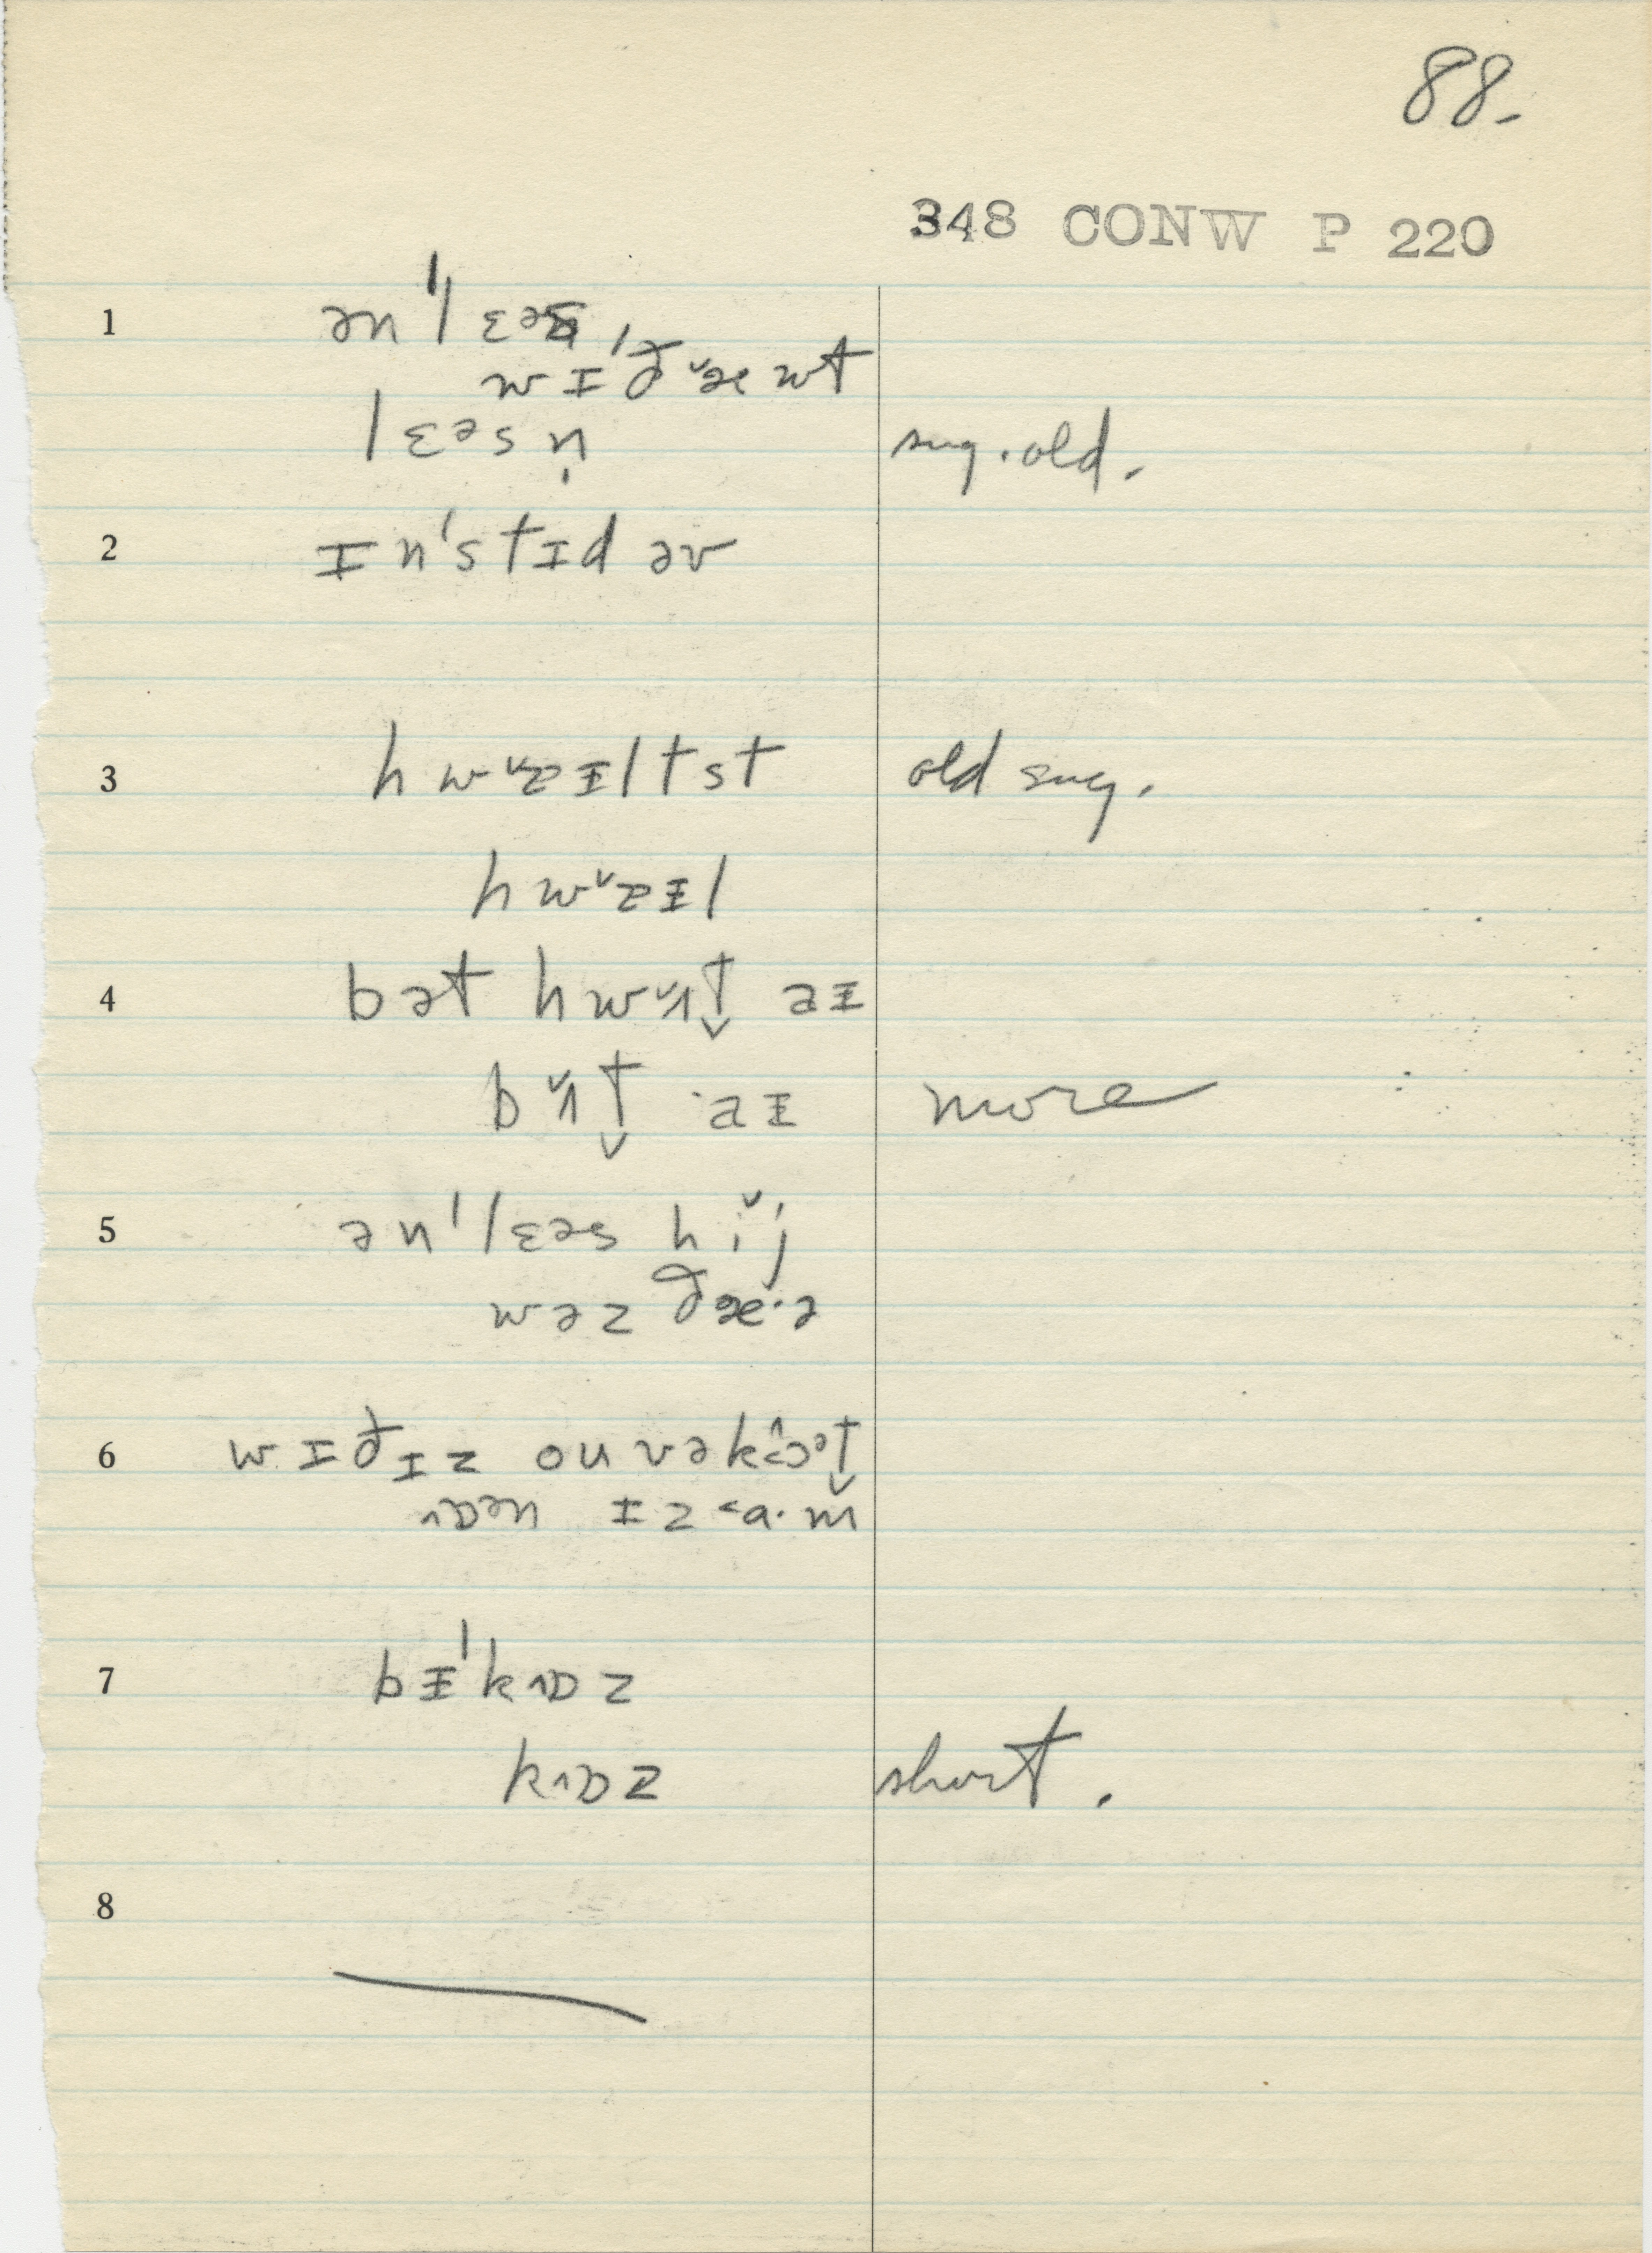 88.
348 CONW P 220
1 ən'lɛəs
wɪ'ðæwt
lɛəsn̩ sug. old.
2 ɪn'stɪd əv
3 hwaɪltst old sug.
hwaɪl
4 bət hwʌt aɪ
bʌt aɪ more
5 ən'lɛəs hij
wəz ðæ·ə
6 wɪðɪz ouvəkɔət
ɒən ɪz a·m
7 bɪ'kɒz
kɒz short.
8